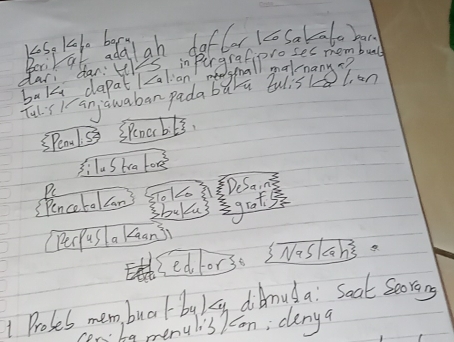 Kosa Kata baru
Berikut adalah daftar Kosakata baru
dari dari teks infografi proses membuat
buku dapat Kalian maknanya?
Tulis Kan jawaban pada buku tulis Kalian
Penulis Penerbit,
ilustrator
Pe
Pencetakan Toko buku Desain grafis
Perpustakaan
editor Naskah
1 Proses membuat buku dimuda: Saat Seorang
menulis Kan: idenya